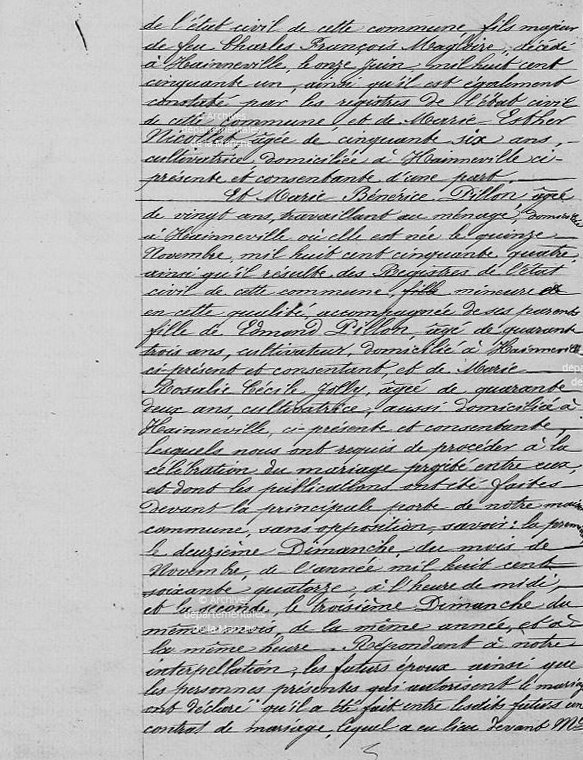 de l'état civil de cette commune, fils majeur
de feu Charles François Magloire, décédé
à Hainneville, le onze Juin, mil huit cent
cinquante un, ainsi qu'il est également
constaté par les registres de l'état civil
de cette commune et de Marie Esther
Nicollet âgée de cinquante six ans,
cultivatrice, domiciliée à Hainneville ci-
présente et consentante d'une part.
Et Marie Bénérice Pillon, âgée
de vingt ans, travaillant au ménage, domiciliée
à Hainneville où elle est née le quinze
Novembre, mil huit cent cinquante quatre,
ainsi qu'il résulte des Registres de l'état
civil de cette commune, fille mineure et
en cette qualité, accompagnée de ses parents
fille de Edmond Pillon âgé de quarante
trois ans, cultivateur, domicilié à Hainneville
ci-présent et consentant, et de Marie
Rosalie Cécile Jolly, âgée de quarante
deux ans, cultivatrice, aussi domiciliée à
Hainneville, ci-présente et consentante,
lesquels nous ont requis de procéder à la
célébration du mariage projeté entre eux,
et dont les publications ont été faites
devant la principale porte de notre maison
commune, sans opposition, savoir: la première
le deuxième Dimanche, du mois de
Novembre, de l'année mil huit cent
soixante quatorze, à l'heure de midi,
et la seconde, le troisième Dimanche du
même mois, de la même année, et à
la même heure. Répondant à notre
interpellation, les futurs époux ainsi que
les personnes présentes qui autorisent le mariage
ont déclaré qu'il a été fait entre lesdits futurs un
contrat de mariage, lequel a eu lieu devant Me
© Archives
départementales
de la Manche
© Archives
départementales
de la Manche